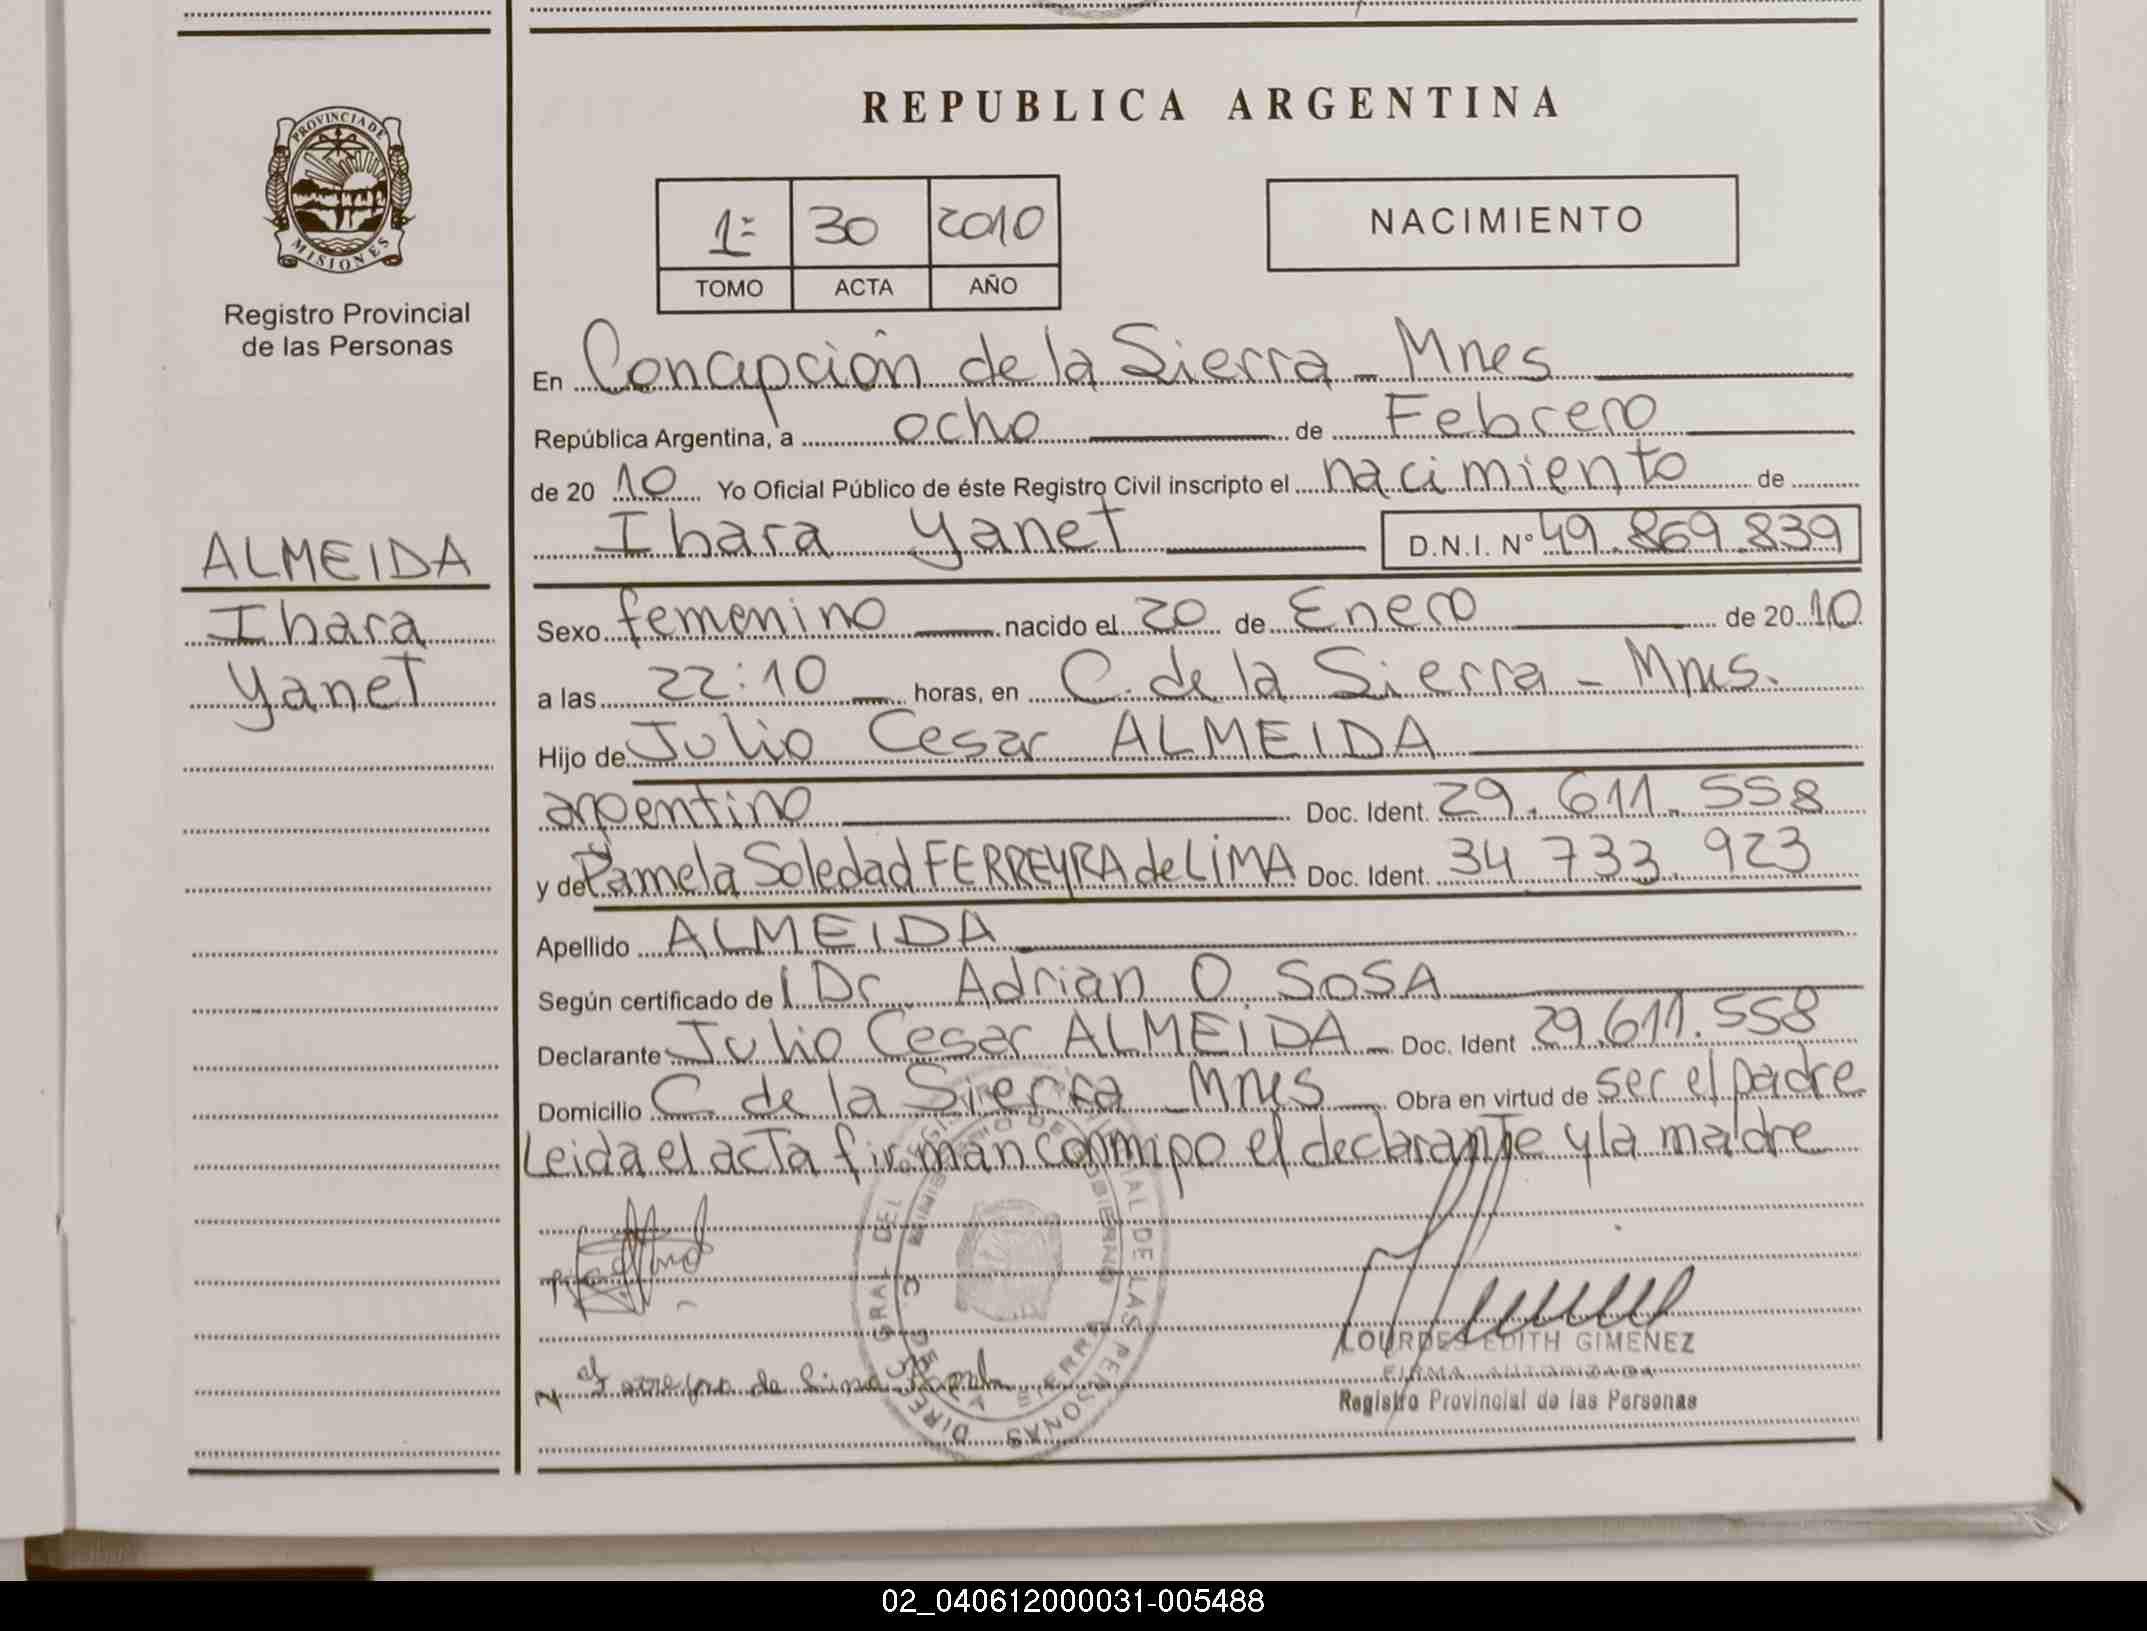 REPUBLICA ARGENTINA
PROVINCIA DE MISIONES
Registro Provincial
de las Personas
1º 30 2010
TOMO ACTA AÑO
NACIMIENTO
En Concepción de la Sierra - Mnes
República Argentina, a ocho de Febrero
de 20 10 Yo Oficial Público de éste Registro Civil inscripto el nacimiento de
Ihara Yanet D.N.I. Nº 49.869.839
ALMEIDA
Ihara
Yanet
Sexo femenino nacido el 20 de Enero de 20 10
a las 22:10 horas, en C. de la Sierra - Mnes.
Hijo de Julio Cesar ALMEIDA
argentino Doc. Ident. 29.611.558
y de Pamela Soledad FERREYRA de LiMA Doc. Ident. 34.733.923
Apellido ALMEIDA
Según certificado de Dr. Adrian O. SOSA
Declarante Julio Cesar ALMEIDA - Doc. Ident 29.611.558
Domicilio C. de la Sierra - Mnes Obra en virtud de ser el padre
Leida el acta firman conmigo el declarante y la madre
LOURDES EDITH GIMENEZ
FIRMA AUTORIZADA
Registro Provincial de las Personas
02_040612000031-005488